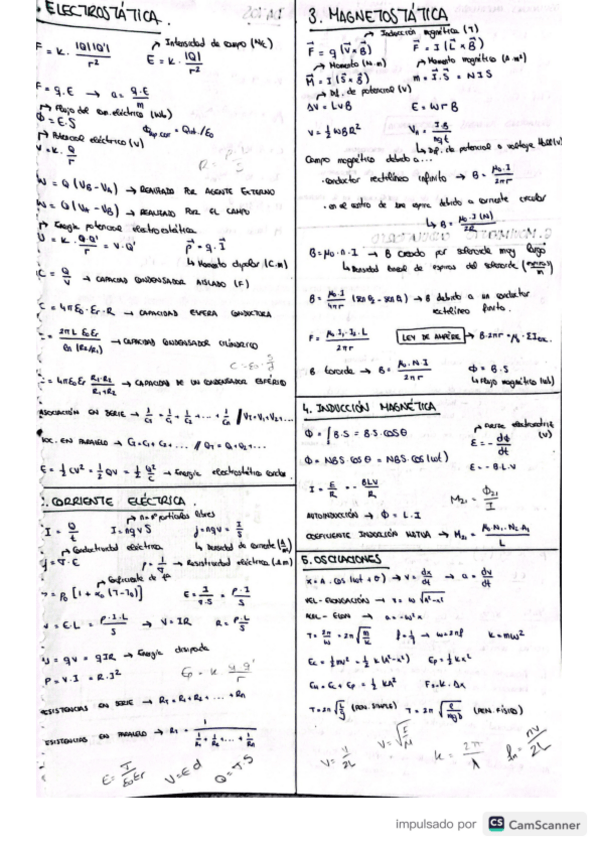 ELECTROSTÁTICA.
F = K · |Q||Q'| / r²
→ Intensidad de campo (N/C)
E = K · |Q| / r²
F = q.E → a = q.E / m
→ Flujo del campo eléctrico (Wb)
Φ = E.S
→ Potencial eléctrico (V)
V = K · Q / r
W = Q (VB - VA) → REALIZADO POR AGENTE EXTERNO
W = Q (VA - VB) → REALIZADO POR EL CAMPO
→ Energía potencial electrostática
U = K · Q·Q' / r = V·Q'
↳ Momento dipolar (C.m)
C = Q / V → CAPACIDAD CONDENSADOR AISLADO (F)
C = 4πε0·εr·R → CAPACIDAD ESFERA CONDUCTORA
= 2πL ε0εr / ln (R2/R1) → CAPACIDAD CONDENSADOR CILÍNDRICO
= 4πε0εr R1·R2 / R1+R2 → CAPACIDAD DE UN CONDENSADOR ESFÉRICO
ASOCIACIÓN EN SERIE → 1/CT = 1/C1 + 1/C2 + ... + 1/Cn / VT = V1+V2+...
EN PARALELO → CT = C1 + C2 + ... / QT = Q1+Q2+...
E = 1/2 CV² = 1/2 QV = 1/2 Q²/C → Energía electrostática
CORRIENTE ELÉCTRICA.
→ n = nº partículas libres
I = Q / t I = nqvS j = nqv = I / S
→ Conductividad eléctrica
↳ Densidad de corriente
j = σ·E ρ = 1/σ → Resistividad eléctrica (Ωm)
→ Coeficiente de Tª
= ρ0 [1 + α0 (T-T0)] E = I / σ.S = ρ·I / S
V = E·L = ρ·I·L / S → V = IR R = ρ·L / S
U = qV = qIR → Energía disipada
P = V.I = R.I² Ep = K q q' / r
RESISTENCIAS EN SERIE → RT = R1 + R2 + ... + Rn
RESISTENCIAS EN PARALELO → RT = 1 / (1/R1 + 1/R2 + ... + 1/Rn)
V = E d
3. MAGNETOSTÁTICA
→ Inducción magnética (T)
F = q (v × B) F = I (L × B)
→ Momento (N·m) → Momento magnético (A·m²)
M = I (S × B) m = I.S = NIS
→ Dif. de potencial (V)
ΔV = LvB E = wrB
V = 1/2 wBR² VH = I·B / nqt
↳ Dif. de potencial o voltaje Hall (V)
Campo magnético debido a...
· conductor rectilíneo infinito → B = μ0·I / 2πr
· en el centro de una espira debido a corriente circular
↳ B = μ0·I (N) / 2R
B = μ0·n·I → B creado por solenoide muy largo
↳ Densidad lineal de espiras del solenoide
→ B debido a un conductor
rectilíneo finito.
F = μ0·I1·I2·L / 2πr
LEY DE AMPÈRE → B·2πr = μ0·ΣI
B toroide → B = μ0·N·I / 2πr Φ = B.S
↳ Flujo magnético (wb)
4. INDUCCIÓN MAGNÉTICA
Φ = ∫ B·S = B·S·cosθ
→ Fuerza electromotriz (V)
ε = - dΦ / dt
Φ = NBS·cosθ = NBS·cos(wt) ε = -B·L·V
I = ε / R = - BLV / R
M21 = Φ21 / I
AUTOINDUCCIÓN → Φ = L.I
COEFICIENTE INDUCCIÓN MUTUA →
5. OSCILACIONES
x = A·cos(wt + θ) → v = dx/dt → a = dv/dt
VEL-ELONGACIÓN → v = w √A²-x²
→ a = -w²x
T = 2π/w = 2π √m/K f = 1/T → w = 2πf K = mw²
Ec = 1/2 mv² = 1/2 K (A²-x²) Ep = 1/2 Kx²
EM = Ec + Ep = 1/2 KA² F = K·Δx
T = 2π √L/g (PEN. SIMPLE) T = 2π √I/mgD (PEN. FÍSICO)
K = 2π / λ fn = nv / 2L
impulsado por CS CamScanner